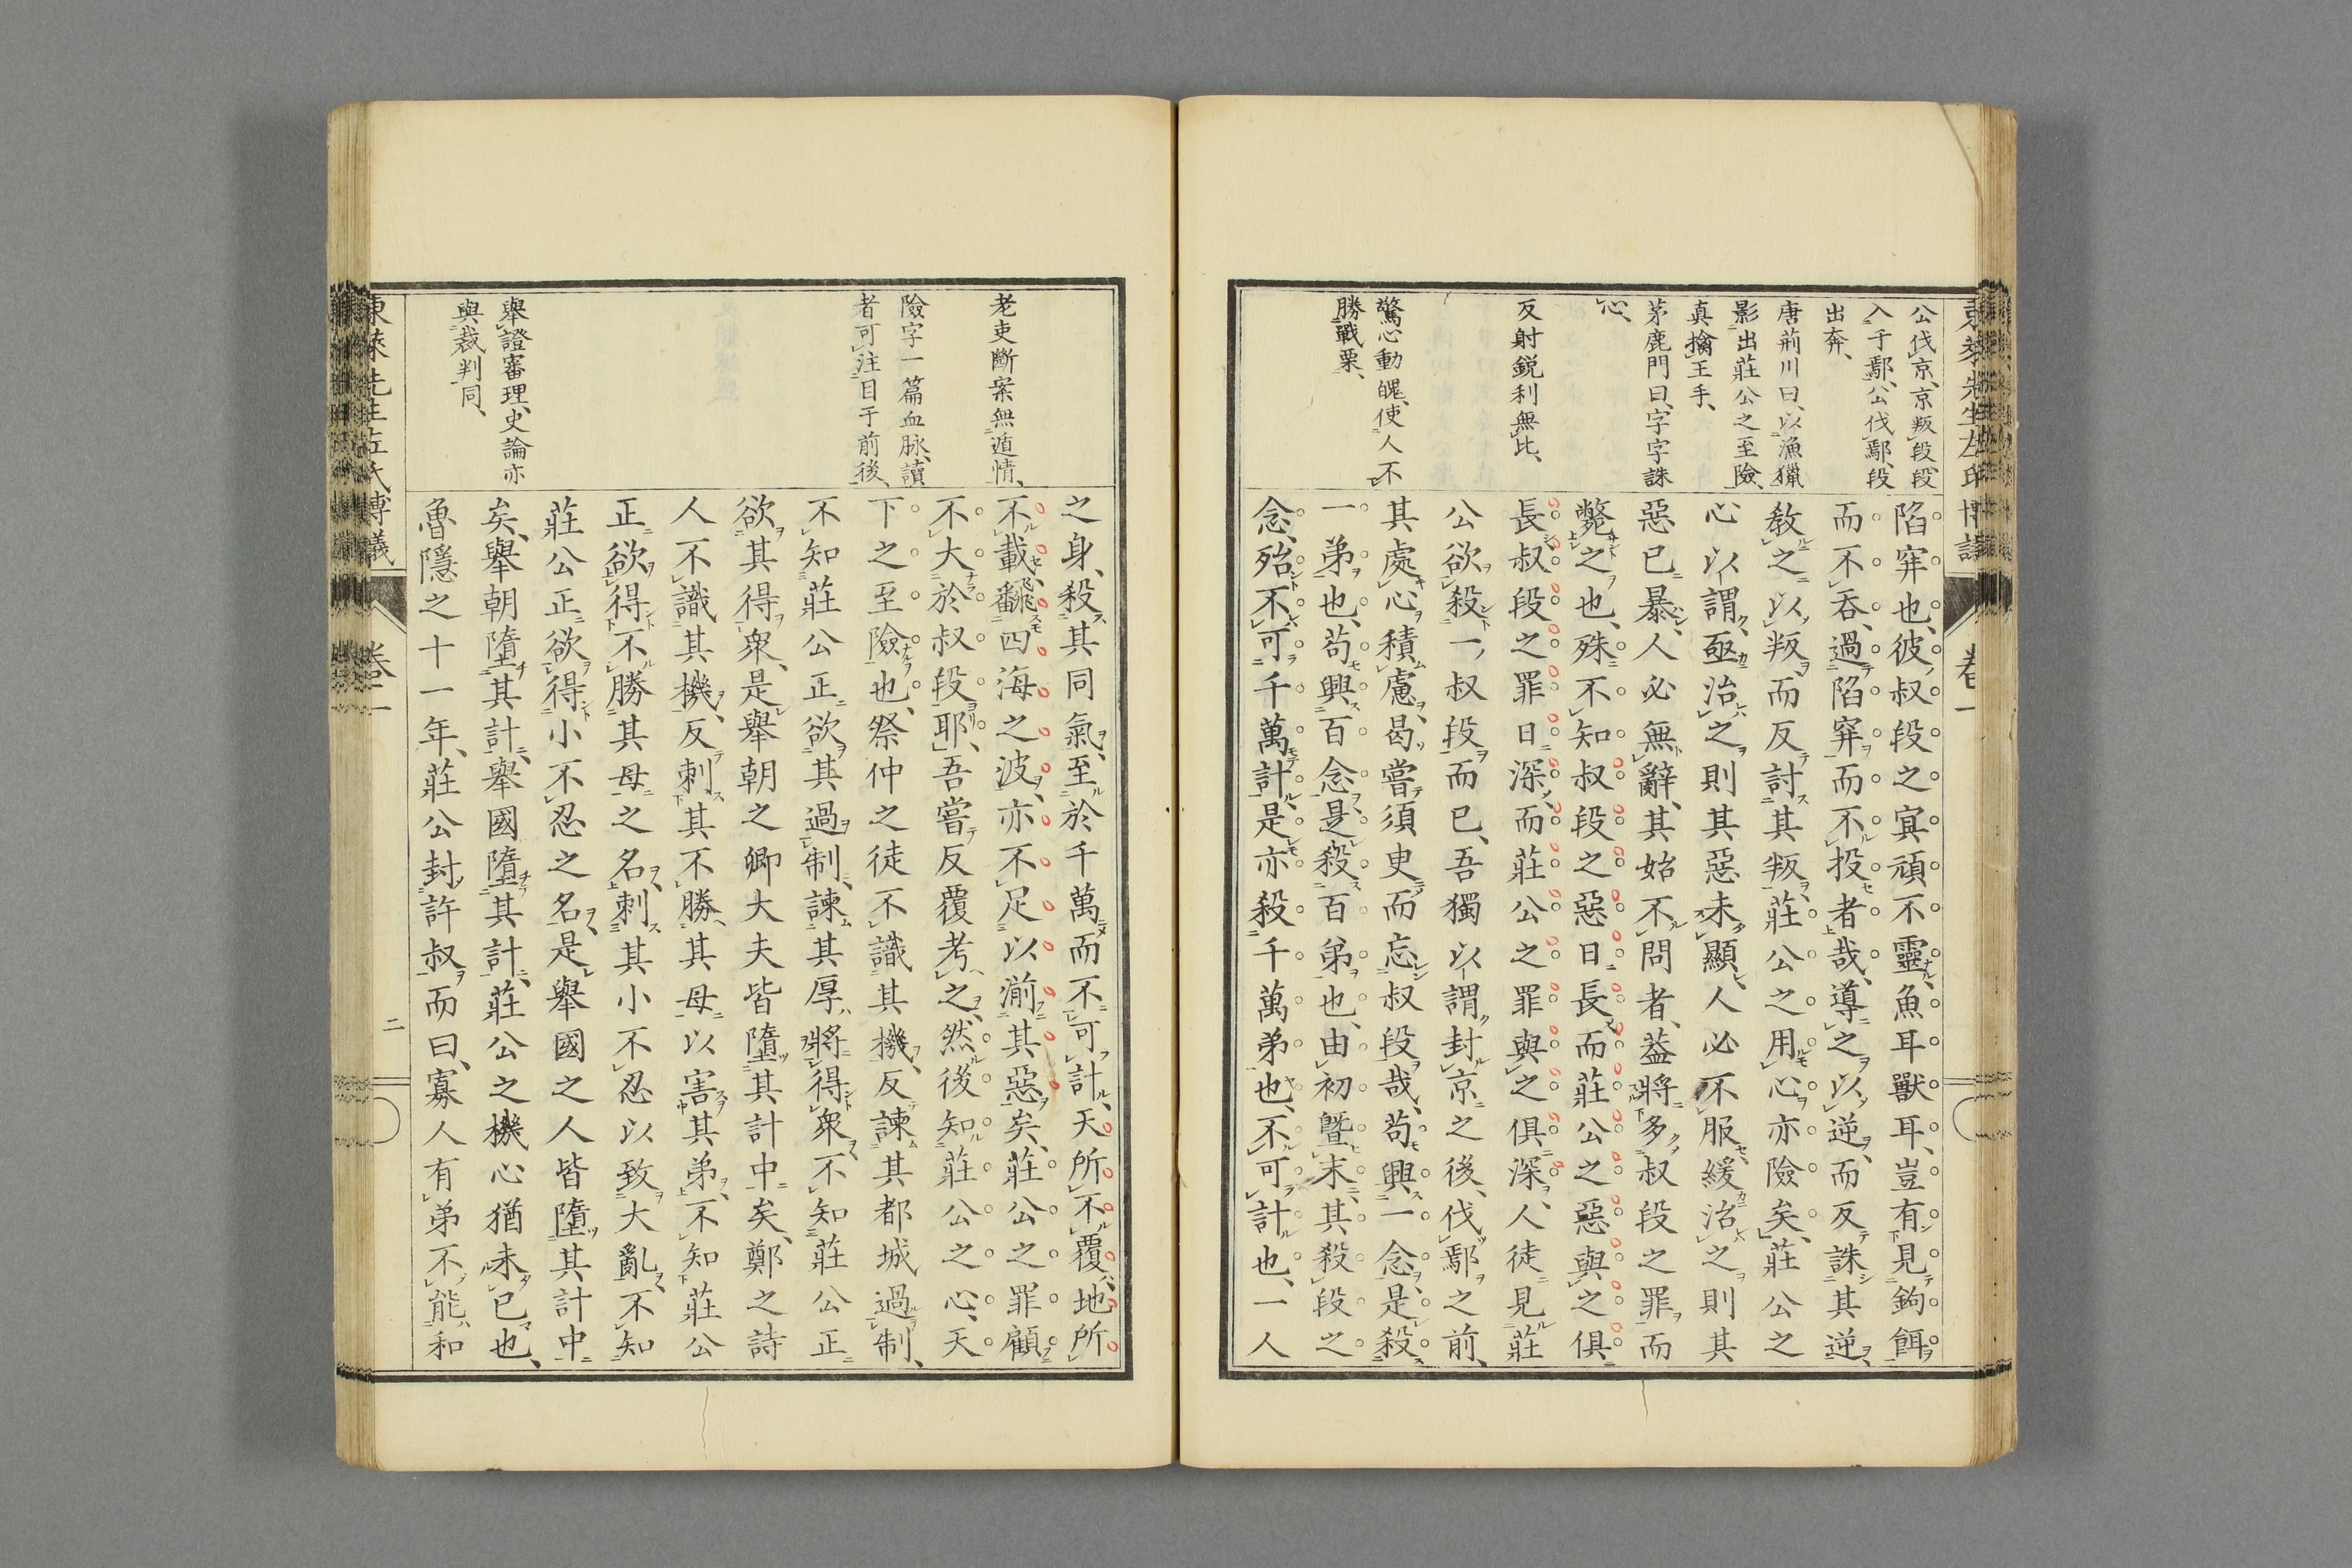 公伐京、京叛段、段
入于鄢、公伐鄢、段
出奔、
唐荊川曰、以漁獵
影出莊公之至險、
真擒王手、
茅鹿門曰、字字誅
心、
反射鋭利無比、
驚心動魄、使人不
勝戰栗、
陷穽也、彼叔段之冥頑不靈、魚耳獸耳、豈有見鉤餌
而不吞、過陷穽而不投者哉、導之以逆、而反誅其逆、
教之以叛、而反討其叛、莊公之用心亦險矣、莊公之
心以謂亟治之則其惡未顯、人必不服、緩治之則其
惡已暴、人必無辭、其始不問者、蓋將多叔段之罪而
斃之也、殊不知叔段之惡日長而莊公之惡與之俱
長、叔段之罪日深、而莊公之罪與之俱深、人徒見莊
公欲殺一叔段而已、吾獨以謂封京之後、伐鄢之前、
其處心積慮、曷嘗須臾而忘叔段哉、苟興一念、是殺
一弟也、苟興百念、是殺百弟也、由初曁末、其殺段之
念、殆不可千萬計、是亦殺千萬弟也、不可計也、一人
老吏斷案無遁情、
險字一篇血脉、讀
者可注目于前後、
舉證審理、史論亦
與裁判同、
之身、殺其同氣、至於千萬而不可計、天所不覆、地所
不載、飜四海之波、亦不足以湔其惡矣、莊公之罪顧
不大於叔段耶、吾嘗反覆考之、然後知莊公之心、天
下之至險也、祭仲之徒不識其機、反諫其都城過制、
不知莊公正欲其過制、諫其厚將得衆、不知莊公正
欲其得衆、是舉朝之卿大夫皆墮其計中矣、鄭之詩
人不識其機、反刺其不勝其母以害其弟、不知莊公
正欲得不勝其母之名、刺其小不忍以致大亂、不知
莊公正欲得小不忍之名、是舉國之人皆墮其計中
矣、舉朝墮其計、舉國墮其計、莊公之機心猶未已也、
魯隱之十一年、莊公封許叔而曰、寡人有弟不能和
東萊先生左氏博議
卷一
二